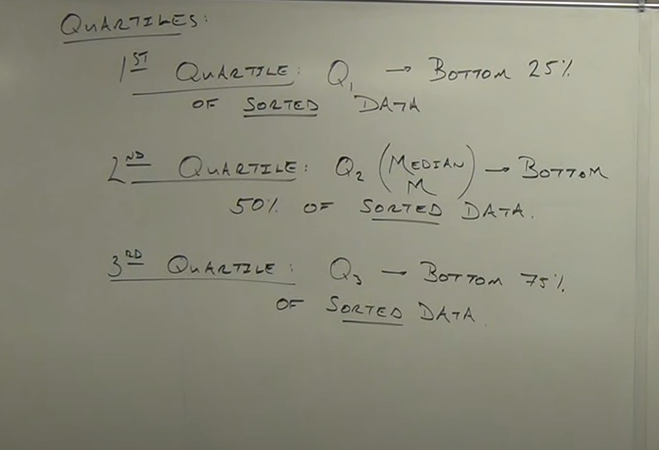 QUARTILES:
1ST QUARTILE: Q1 → BOTTOM 25%
OF SORTED DATA
2ND QUARTILE: Q2 (MEDIAN M) → BOTTOM
50% OF SORTED DATA.
3RD QUARTILE: Q3 → BOTTOM 75%
OF SORTED DATA.